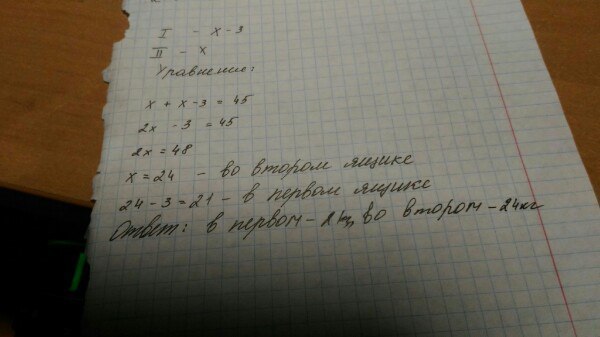 I - x - 3
II - x
Уравнение:
x + x - 3 = 45
2x - 3 = 45
2x = 48
x = 24 - во втором ящике
24 - 3 = 21 - в первом ящике
Ответ: в первом - во втором - 24кг